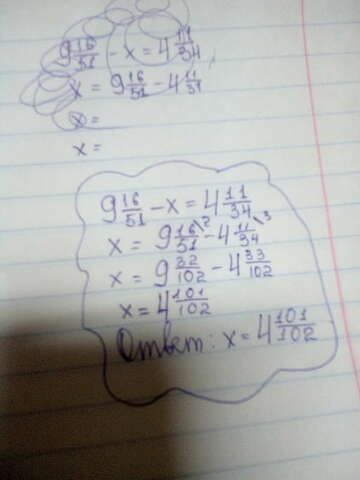 9 16/51 - x = 4 11/34
x = 9 16/51 - 4 11/51
x =
x =
9 16/51 - x = 4 11/34
x = 9 16/51 \2 - 4 11/34 \3
x = 9 32/102 - 4 33/102
x = 4 101/102
Ответ: x = 4 101/102